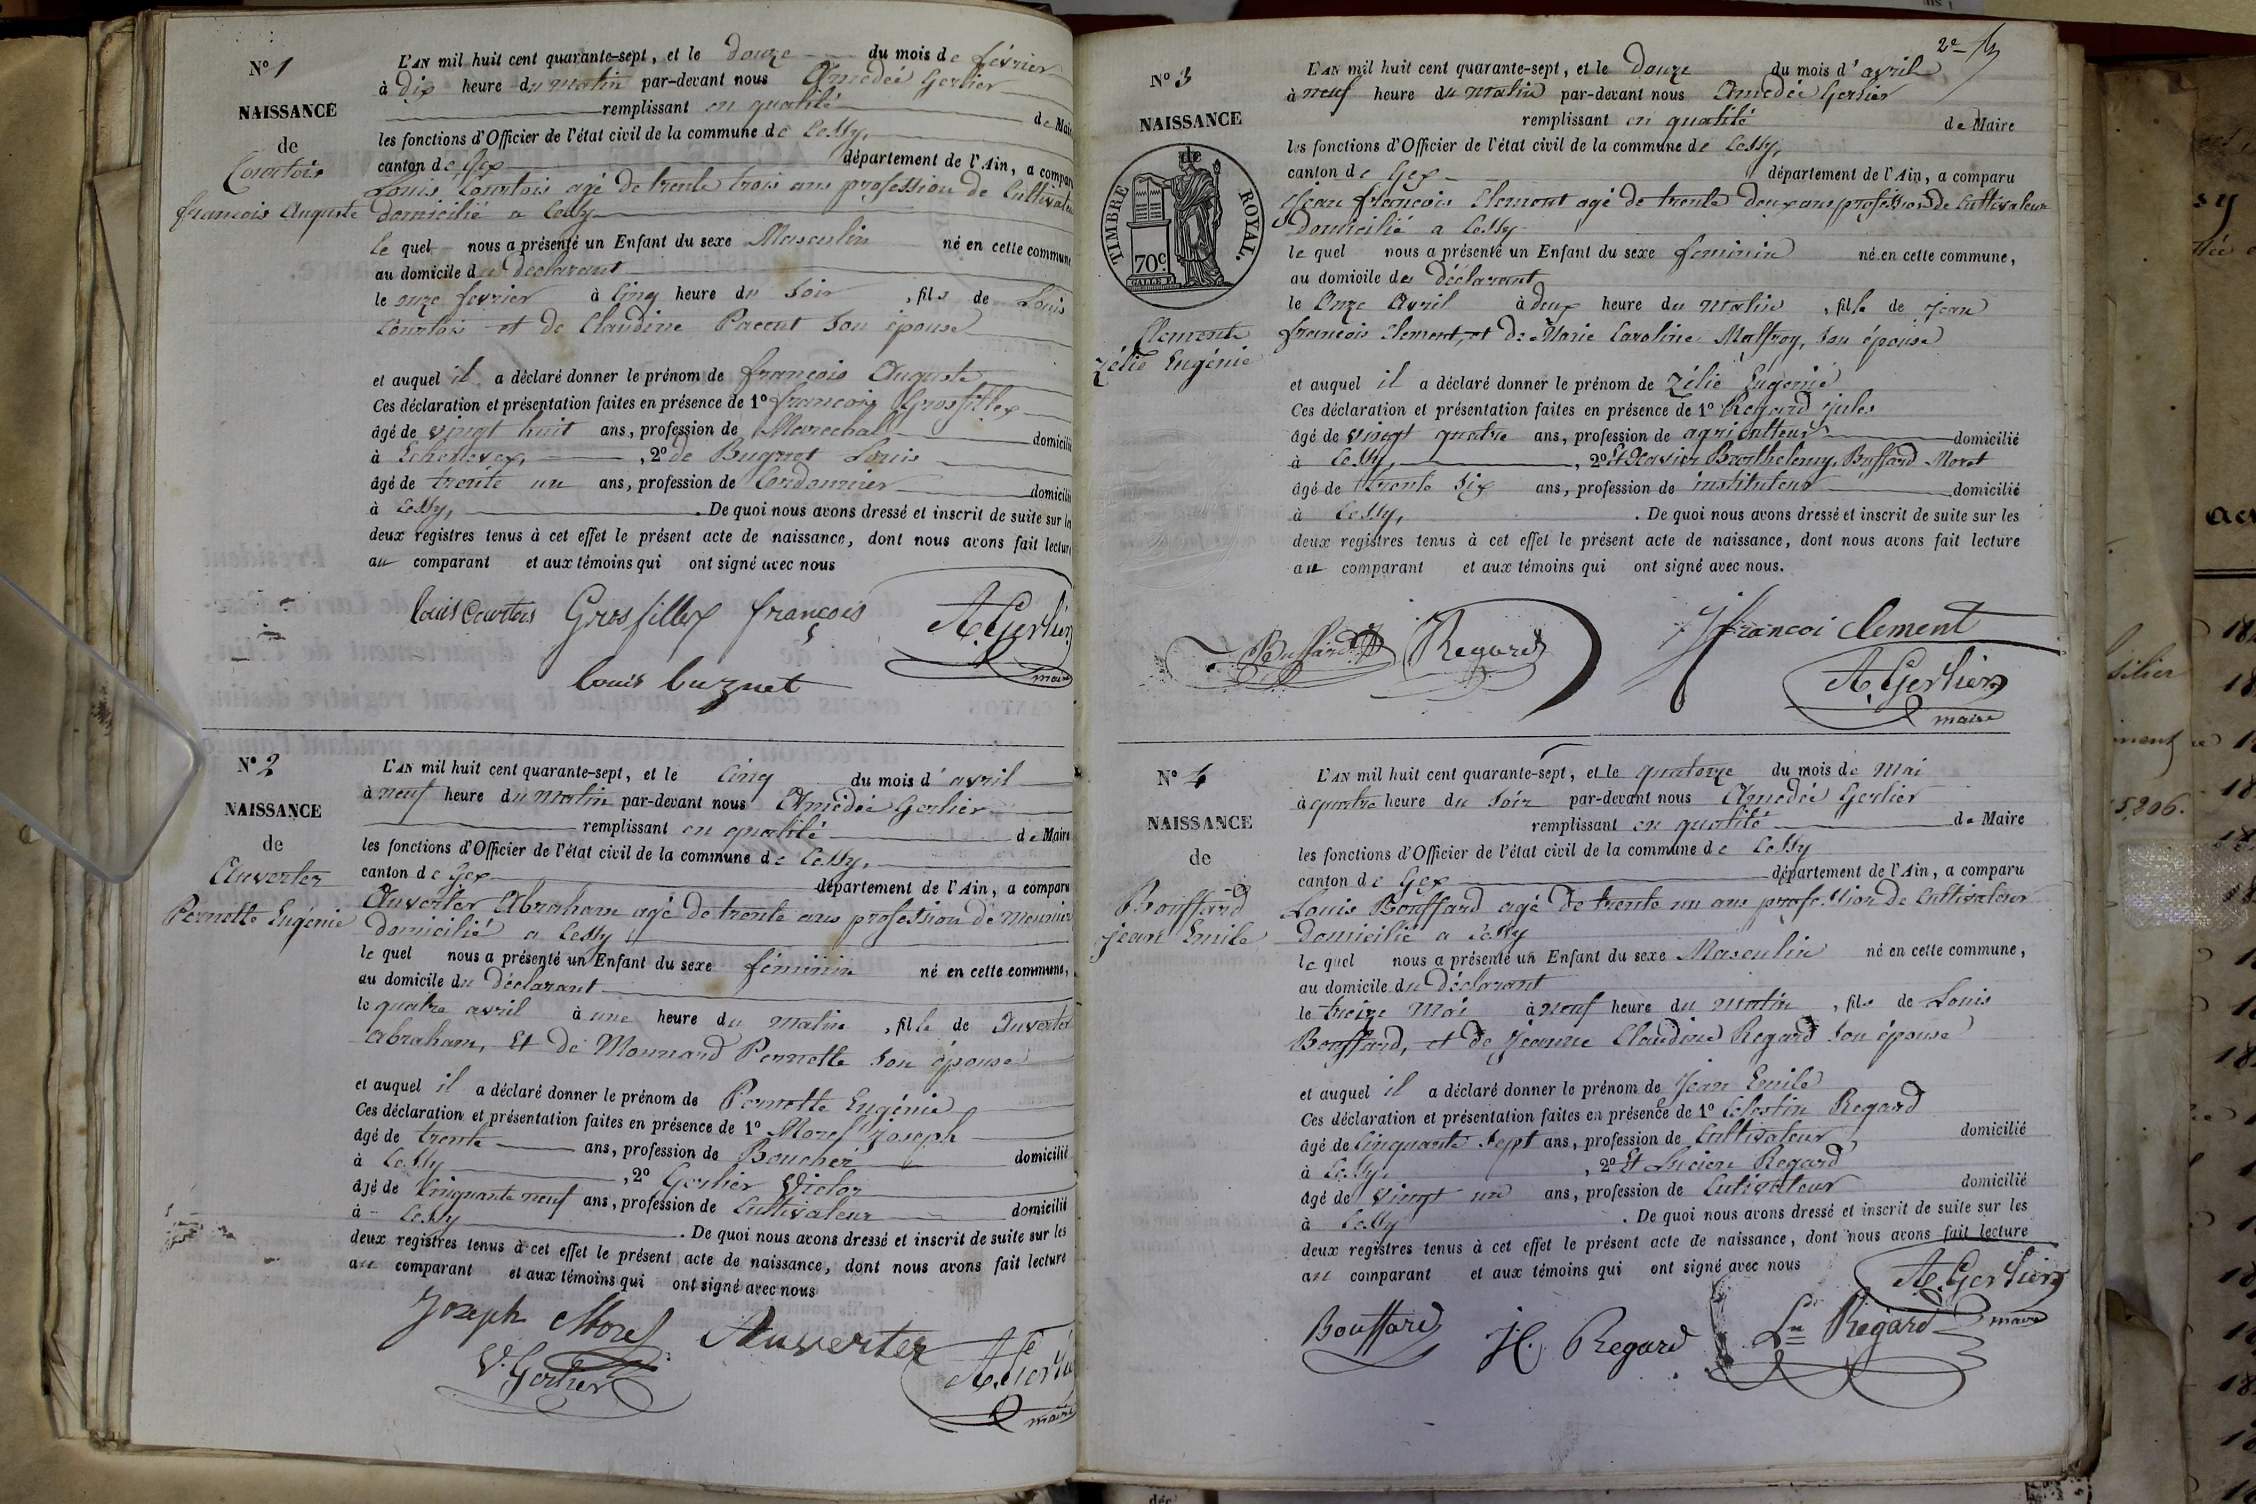 N° 1
NAISSANCE
de
Courtois
francois Auguste
L'AN mil huit cent quarante-sept, et le douze du mois de février
à dix heure du matin par-devant nous Amédeé Gerlier
remplissant en qualité de Maire
les fonctions d'Officier de l'état civil de la commune de Cessy,
canton de Gex département de l'Ain, a comparu
Louis Courtois agé de trente trois ans profession de Cultivateur
domicilié a Cessy
le quel nous a présenté un Enfant du sexe Masculin né en cette commune
au domicile du déclarant
le onze fevrier à Cinq heure du Soir, fils de Louis
Courtois et de Claudine Pacout Son épouse
et auquel il a déclaré donner le prénom de françois Auguste
Ces déclaration et présentation faites en présence de 1° francois Grosfillex
âgé de vingt huit ans, profession de Marechal domicilié
à Echenevex, , 2° de Bugnet Louis
âgé de trente un ans, profession de Cordonnier domicilié
à Cessy, . De quoi nous avons dressé et inscrit de suite sur les
deux registres tenus à cet effet le présent acte de naissance, dont nous avons fait lecture
au comparant et aux témoins qui ont signé avec nous
Louis Courtois Grosfillex françois A. Gerlier
Louis buznet maire
N° 2
NAISSANCE
de
Auverter
Pernette Eugénie
L'AN mil huit cent quarante-sept, et le cinq du mois d'avril
à neuf heure du Matin par-devant nous Amédée Gerlier
remplissant en qualité de Maire
les fonctions d'Officier de l'état civil de la commune de Cessy,
canton de Gex département de l'Ain, a comparu
Auverter Abraham agé de trente ans profession de Meunier
domicilié a Cessy
le quel nous a présenté un Enfant du sexe féminin né en cette commune,
au domicile du Déclarant
le quatre avril à une heure du matin, fille de Auverter
Abraham, Et de Monnard Pernette Son épouse
et auquel il a déclaré donner le prénom de Pernette Eugénie
Ces déclaration et présentation faites en présence de 1° Morel joseph
âgé de trente ans, profession de Boucher domicilié
à Cessy , 2° Gerlier Victor
âgé de Cinquante neuf ans, profession de Cultivateur domicilié
à Cessy . De quoi nous avons dressé et inscrit de suite sur les
deux registres tenus à cet effet le présent acte de naissance, dont nous avons fait lecture
au comparant et aux témoins qui ont signé avec nous
Joseph Morel Auverter
V. Gerlier A. Gerlier
maire
2e
N° 3
NAISSANCE
de
TIMBRE ROYAL.
70c.
Clement
Zélie Eugénie
L'AN mil huit cent quarante-sept, et le douze du mois d'avril
à neuf heure du matin par-devant nous Amedée Gerlier
remplissant en qualité de Maire
les fonctions d'Officier de l'état civil de la commune de Cessy,
canton de Gex département de l'Ain, a comparu
Jean francois Clement agé de trente deux ans profession de Cultivateur
Domicilié a Cessy
le quel nous a présenté un Enfant du sexe feminin né en cette commune,
au domicile du déclarant
le Onze Avril à deux heure du Matin, fille de Jean
francois Clement, et de Marie Caroline Malfroy, Son épouse
et auquel il a déclaré donner le prénom de Zélie Eugenie
Ces déclaration et présentation faites en présence de 1° Regard jules
âgé de vingt quatre ans, profession de agriculteur domicilié
à Cessy, , 2° Et Xavier Barthelemy Buffard Moret
âgé de trente Six ans, profession de instituteur domicilié
à Cessy, . De quoi nous avons dressé et inscrit de suite sur les
deux registres tenus à cet effet le présent acte de naissance, dont nous avons fait lecture
au comparant et aux témoins qui ont signé avec nous.
Buffard Regard Jfrancoi Clement
A. Gerlier
maire
N° 4
NAISSANCE
de
Bouffard
Jean Emile
L'AN mil huit cent quarante-sept, et le quatorze du mois de Mai
à quatre heure du Soir par-devant nous Amedée Gerlier
remplissant en qualité de Maire
les fonctions d'Officier de l'état civil de la commune de Cessy
canton de Gex département de l'Ain, a comparu
Louis Bouffard agé de trente un ans profession de Cultivateur
Domicilié a Cessy
le quel nous a présenté un Enfant du sexe Masculin né en cette commune,
au domicile du Déclarant
le treize Mai à neuf heure du matin, fils de Louis
Bouffard, et de Jeanne Claudine Regard Son épouse
et auquel il a déclaré donner le prénom de Jean Emile
Ces déclaration et présentation faites en présence de 1° Celestin Regard
âgé de Cinquante Sept ans, profession de Cultivateur domicilié
à Cessy, , 2° Et Lucien Regard
âgé de vingt un ans, profession de Cutivateur domicilié
à Cessy . De quoi nous avons dressé et inscrit de suite sur les
deux registres tenus à cet effet le présent acte de naissance, dont nous avons fait lecture
au comparant et aux témoins qui ont signé avec nous
A. Gerlier
maire
Bouffard Regard Ln Regard